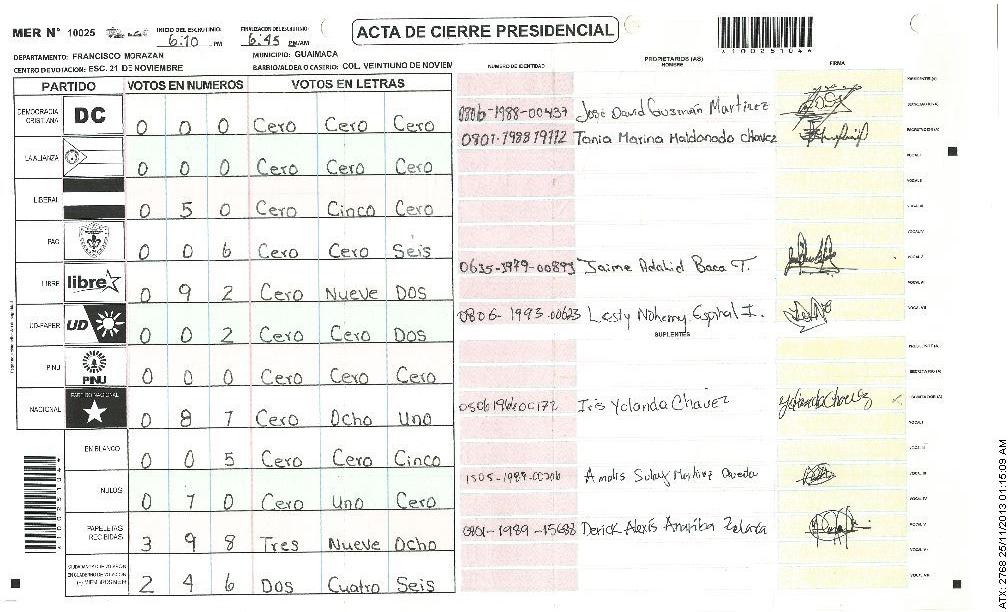 MER N° 10025
INICIO DEL ESCRUTINIO: 6:10 PM
FINALIZACION DEL ESCRUTINIO: 6:45 PM/AM
ACTA DE CIERRE PRESIDENCIAL
DEPARTAMENTO: FRANCISCO MORAZAN
MUNICIPIO: GUAIMACA
CENTRO DE VOTACION: ESC. 21 DE NOVIEMBRE
BARRIO/ALDEA O CASERIO: COL. VEINTIUNO DE NOVIEM
PARTIDO VOTOS EN NUMEROS VOTOS EN LETRAS
DEMOCRACIA CRISTIANA DC 0 0 0 Cero Cero Cero
LA ALIANZA 0 0 0 Cero Cero Cero
LIBERAL 0 5 0 Cero Cinco Cero
PAC 0 0 6 Cero Cero Seis
LIBRE libre 0 9 2 Cero Nueve Dos
UD-FAPER UD 0 0 2 Cero Cero Dos
PINU PINU 0 0 0 Cero Cero Cero
NACIONAL PARTIDO NACIONAL 0 8 1 Cero Ocho Uno
EN BLANCO 0 0 5 Cero Cero Cinco
NULOS 0 1 0 Cero Uno Cero
PAPELETAS RECIBIDAS 3 9 8 Tres Nueve Ocho
2 4 6 Dos Cuatro Seis
NUMERO DE IDENTIDAD
PROPIETARIOS (AS)
NOMBRE
FIRMA
0806-1988-00437 José David Guzmán Martinez
0801-1988 19112 Tania Marina Maldonado Chavez
0635-1979-00893 Jaime Adalid Baca T.
0806-1993-00623 Lesly Nohemy Espinal I.
SUPLENTES
Iris Yolanda Chavez
Yolanda Chavez
0801-1989-15688 Derick Alexis
ATX: 2768 25/11/2013 01:15:09 AM